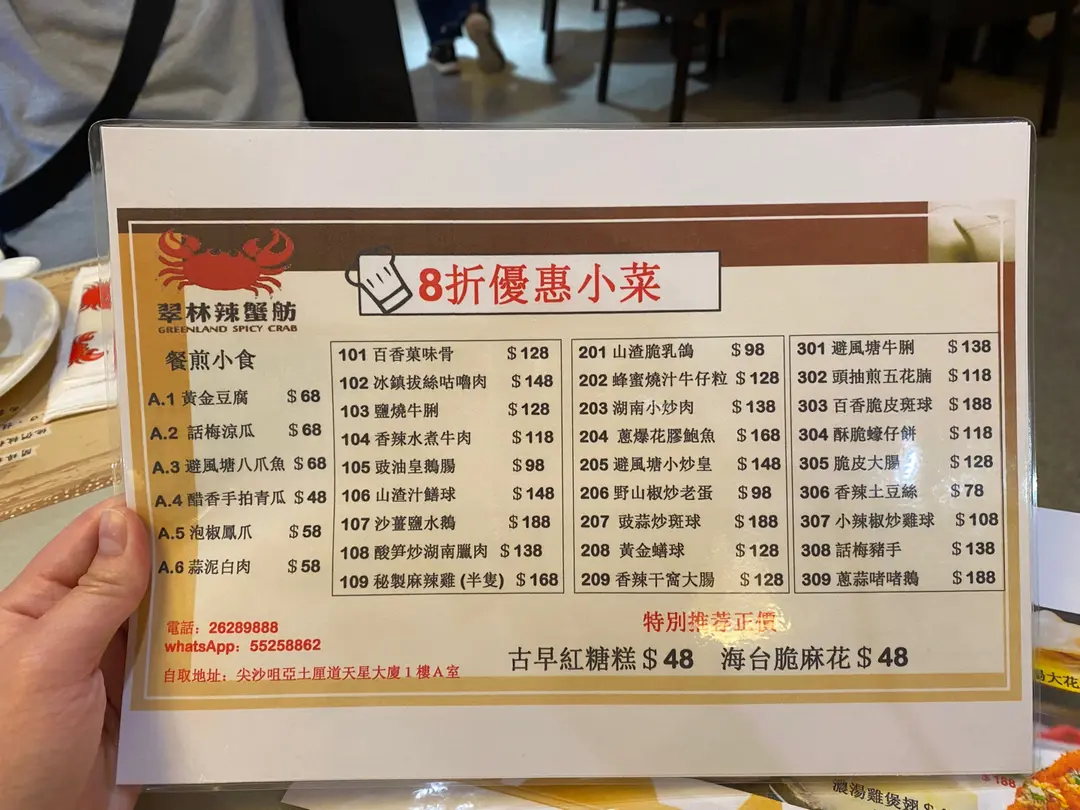 翠林辣蟹舫
GREENLAND SPICY CRAB
8折優惠小菜
餐煎小食
A.1 黃金豆腐 $68
A.2 話梅涼瓜 $68
A.3 避風塘八爪魚 $68
A.4 醋香手拍青瓜 $48
A.5 泡椒鳳爪 $58
A.6 蒜泥白肉 $58
101 百香菓味骨 $128
102 冰鎮拔絲咕嚕肉 $148
103 鹽燒牛脷 $128
104 香辣水煮牛肉 $118
105 豉油皇鵝腸 $98
106 山渣汁鱔球 $148
107 沙薑鹽水鵝 $188
108 酸笋炒湖南臘肉 $138
109 秘製麻辣雞 (半隻) $168
201 山渣脆乳鴿 $98
202 蜂蜜燒汁牛仔粒 $128
203 湖南小炒肉 $138
204 蔥爆花膠鮑魚 $168
205 避風塘小炒皇 $148
206 野山椒炒老蛋 $98
207 豉蒜炒斑球 $188
208 黃金鱔球 $128
209 香辣干窩大腸 $128
301 避風塘牛脷 $138
302 頭抽煎五花腩 $118
303 百香脆皮斑球 $188
304 酥脆蠔仔餅 $118
305 脆皮大腸 $128
306 香辣土豆絲 $78
307 小辣椒炒雞球 $108
308 話梅豬手 $138
309 蔥蒜啫啫鵝 $188
電話：26289888
whatsApp：55258862
自取地址：尖沙咀亞士厘道天星大廈1樓A室
特別推荐正價
古早紅糖糕$48 海台脆麻花$48
大花
濃湯雞煲翅
$188